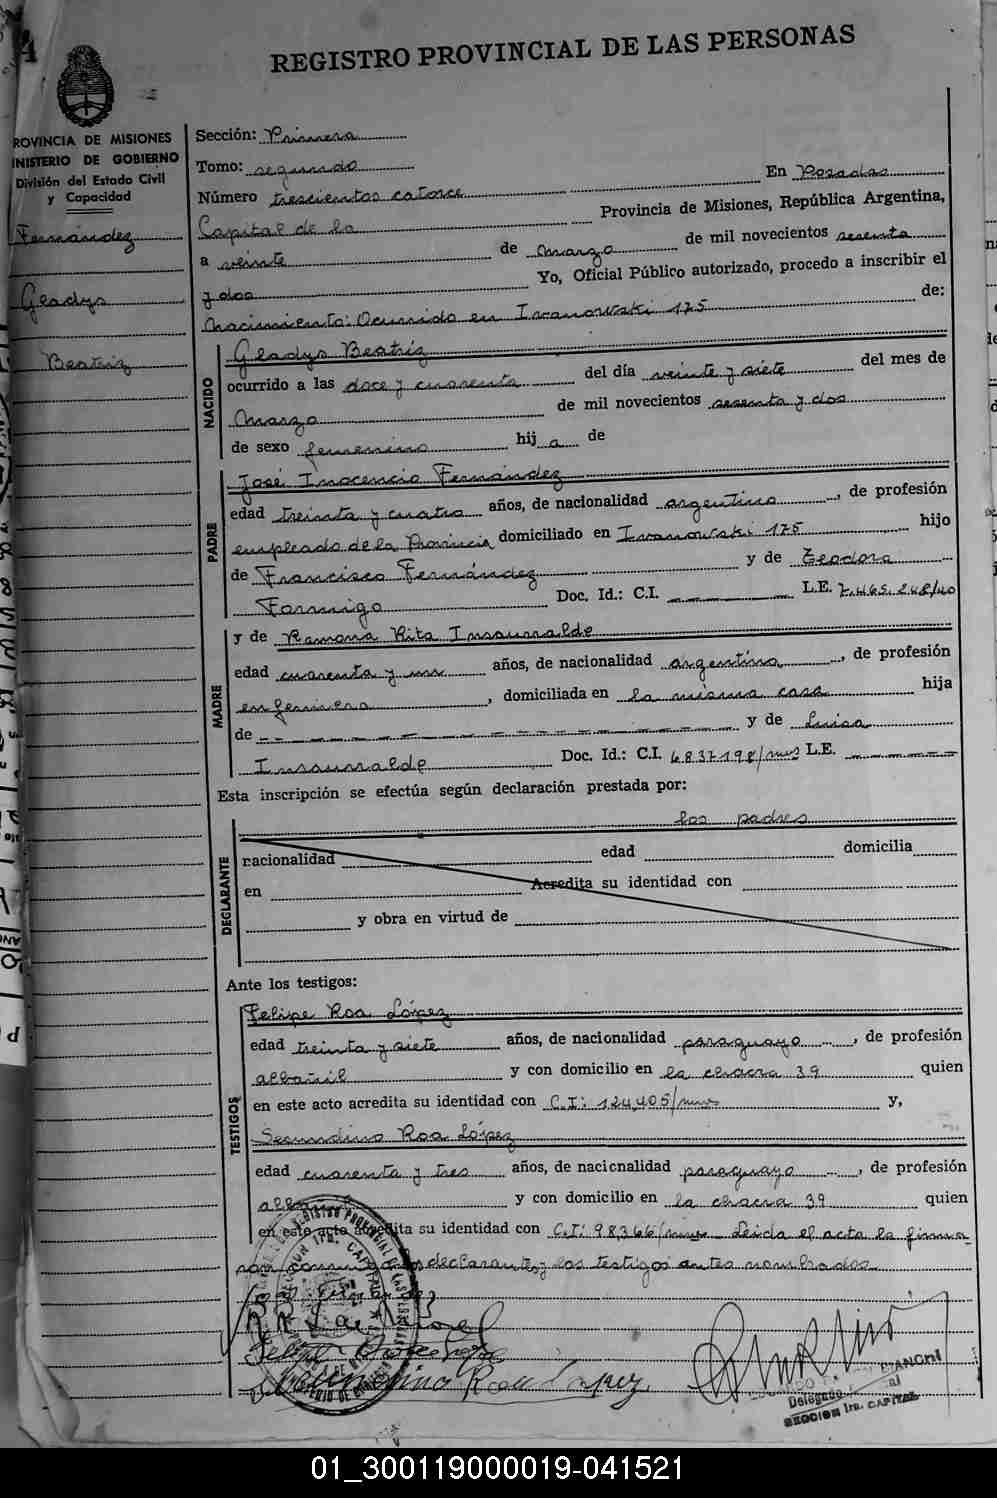 REGISTRO PROVINCIAL DE LAS PERSONAS
PROVINCIA DE MISIONES
MINISTERIO DE GOBIERNO
División del Estado Civil
y Capacidad
Fernández
Gladys
Beatriz
Sección: Primera
Tomo: segundo
Número trescientos catorce En Posadas
Capital de la Provincia de Misiones, República Argentina,
a veinte de marzo de mil novecientos sesenta
y dos Yo, Oficial Público autorizado, procedo a inscribir el
Nacimiento: Ocurrido en Iwanowski 175 de:
NACIDO
Gladys Beatriz
ocurrido a las doce y cuarenta del día veinte y siete del mes de
Marzo de mil novecientos sesenta y dos
de sexo femenino hij a de
PADRE
José Inocencio Fernández
edad treinta y cuatro años, de nacionalidad argentino, de profesión
empleado de la Provincia domiciliado en Iwanowski 175 hijo
de Francisco Fernández y de Teodora
Formigo Doc. Id.: C.I. L.E. 7.465.248/40
MADRE
y de Ramona Rita Insaurralde
edad cuarenta y un años, de nacionalidad argentina, de profesión
enfermera, domiciliada en la misma casa hija
de y de Luisa
Insaurralde Doc. Id.: C.I. 6837198/mns L.E.
Esta inscripción se efectúa según declaración prestada por:
los padres
DECLARANTE
nacionalidad edad domicilia
en Acredita su identidad con
y obra en virtud de
Ante los testigos:
TESTIGOS
Felipe Roa López
edad treinta y siete años, de nacionalidad paraguayo, de profesión
albañil y con domicilio en la chacra 39 quien
en este acto acredita su identidad con C.I: 124,405/mns y,
Secundino Roa López
edad cuarenta y tres años, de nacionalidad paraguayo, de profesión
y con domicilio en la chacra 39 quien
en este acto acredita su identidad con C.I: 98,366/mns Leida el acta la firma
declarantes y los testigos antes nombrados
Roa Lopez
BIANCHI
Delegado
SECCION 1ra. CAPITAL
01_300119000019-041521